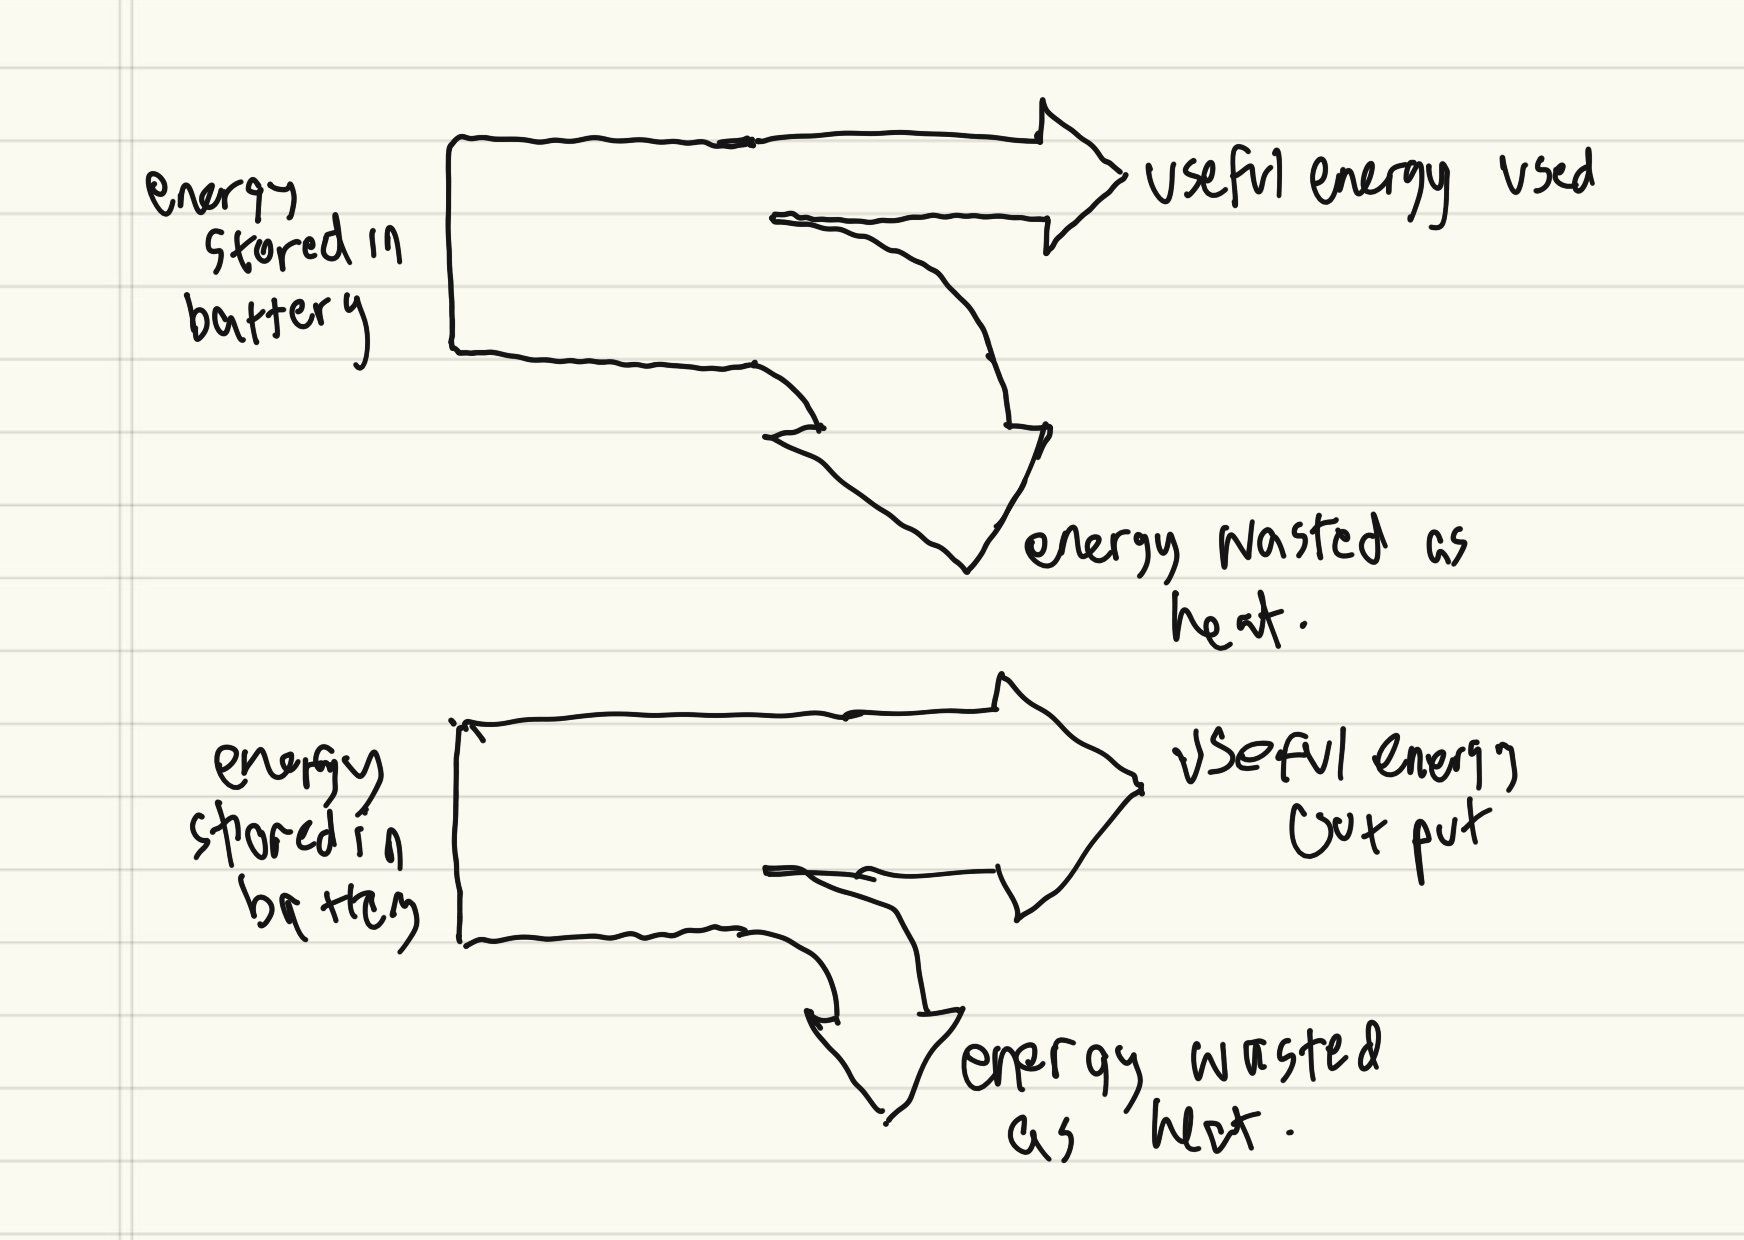 energy
stored in
battery
useful energy used
energy wasted as
heat.
energy
stored in
battery
useful energy
output
energy wasted
as heat.